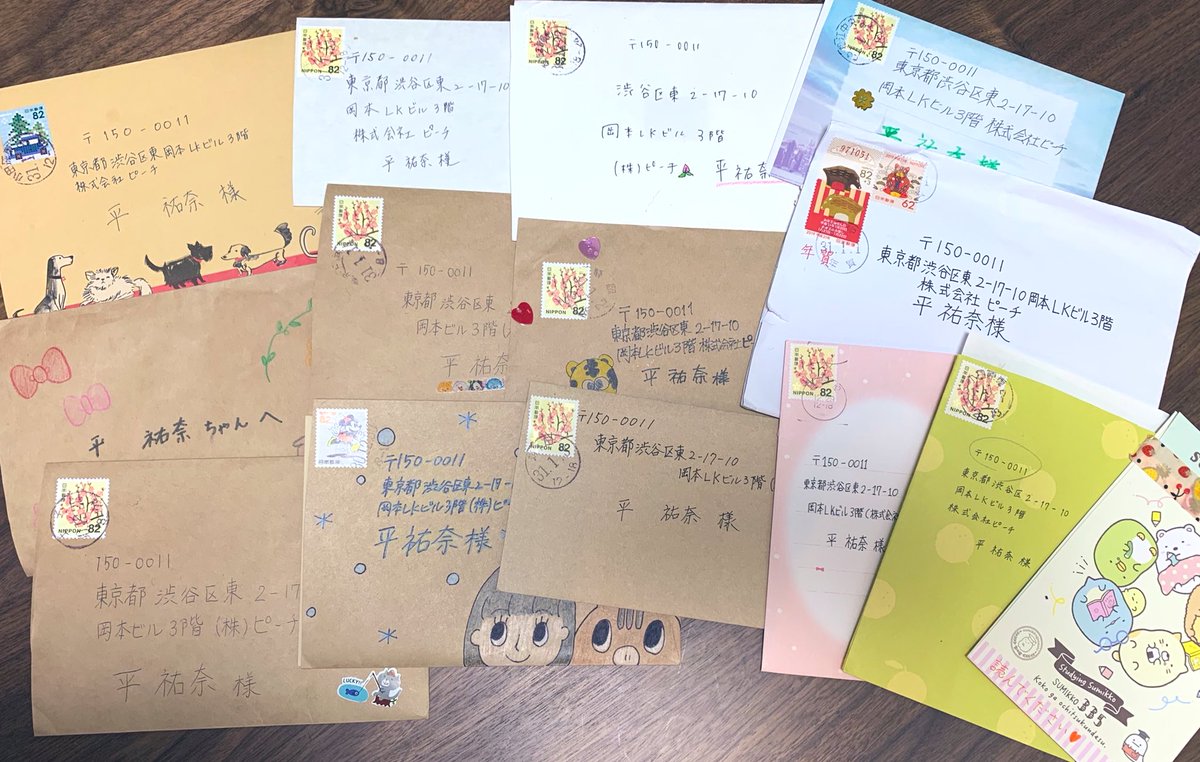 〒150-0011
東京都渋谷区東岡本LKビル3階
株式会社ピーチ
平 祐奈 様
〒150-0011
東京都渋谷区東2-17-10
岡本LKビル3階
株式会社 ピーチ
平 祐奈 様
〒150-0011
渋谷区東2-17-10
岡本LKビル 3階
(株)ピーチ 平 祐奈
〒150-0011
東京都渋谷区東2-17-10
岡本LKビル3階 株式会社ピーチ
平 祐奈 様
年賀
〒150-0011
東京都渋谷区東2-17-10岡本LKビル3階
株式会社ピーチ
平 祐奈 様
〒150-0011
東京都渋谷区東
岡本ビル3階
平 祐奈
〒150-0011
東京都渋谷区東2-17-10
岡本LKビル3階 株式会社ピ
平 祐奈 様
平 祐奈ちゃんへ
〒150-0011
東京都渋谷区東 2-17
岡本ビル3階(株)ピーチ
平 祐奈 様
LUCKY!!
〒150-0011
東京都渋谷区東2-17-
岡本LKビル3階(株)ピ
平 祐奈 様
〒150-0011
東京都渋谷区東2-17-10
岡本LKビル3階(
平 祐奈 様
〒150-0011
東京都渋谷区東2-17-10
岡本LKビル3階(株式会
平 祐奈 様
〒150-0011
東京都渋谷区2-17-10
岡本LKビル3階
株式会社ピーチ
平 祐奈 様
Studying Sumikko
SUMIKKO 335
Koko ga ochitsukundesu.
読んでください
日本郵便
NIPPON 82
62